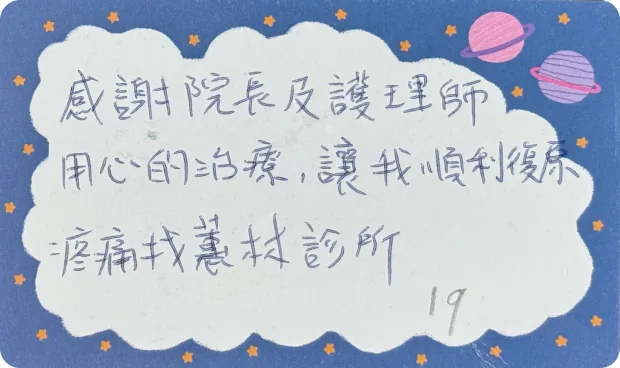 感謝院長及護理師
用心的治療,讓我順利復原
疼痛找蕙林診所
19